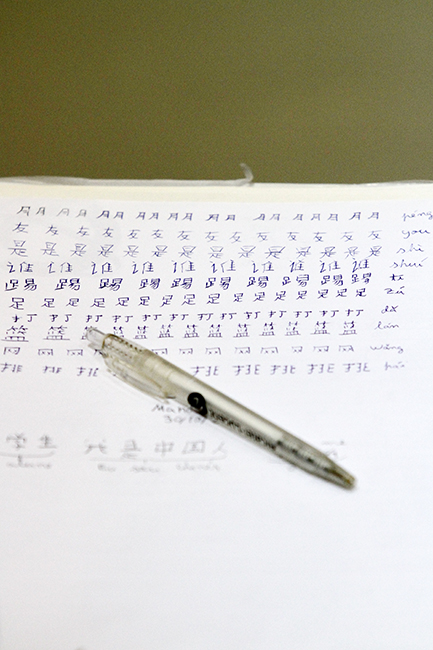 朋 朋 朋 朋 朋 朋 朋 朋 朋 朋 péng
友 友 友 友 友 友 友 友 友 友 友 友 友 you
是 是 是 是 是 是 是 是 是 是 是 是 是 shì
谁 谁 谁 谁 谁 谁 谁 谁 谁 谁 shuí
踢 踢 踢 踢 踢 踢 踢 踢 踢 踢 踢
足 足 足 足 足 足 足 足 足 足 足 足 足 足 足 zú
打 打 打 打 打 打 打 打 打 打 打 打 dǎ
篮 篮 篮 篮 篮 篮 篮 篮 篮 篮 篮 lán
网 网 网 网 网 网 网 网 网 网 网 wǎng
排 排 排 排 排 排 排 排 排
学生 我是中国人
aluno eu sou chinês